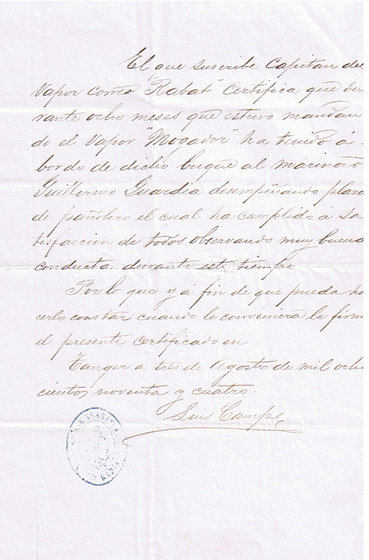 El que suscribe Capitan del
Vapor correo "Rabat" Certifica que du
rante ocho meses que estuvo mandan
do el Vapor "Mogador" ha tenido á
bordo de dicho buque al marinero
Guillermo Guardia desempeñando plaza
de pañolero el cual ha cumplido á sa
tisfaccion de todos observando muy buena
conducta durante este tiempo
Por lo que y á fin de que pueda ha
cerlo constar cuando le conviniera le firmo
el presente certificado en
Tanger á tres de Agosto de mil ocho
cientos noventa y cuatro.
Luis Campe